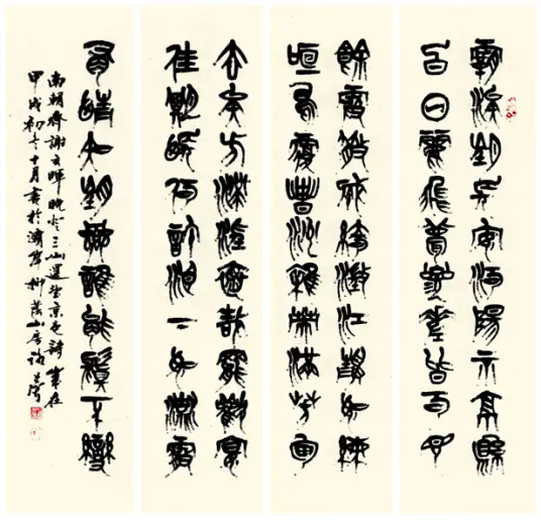 霸涘望長安河陽示京縣
白日麗飛甍參差皆可見
餘霞散成綺澂江靜如練
喧鳥覆春洲雜英滿芳甸
去矣方滯淫懷哉罷歡宴
佳期悵何許淚下如流霰
有情知望鄉誰能鬒不變
南朝齊謝玄暉晚登三山還望京邑詩歲在
甲戌初冬十月書於濟寧